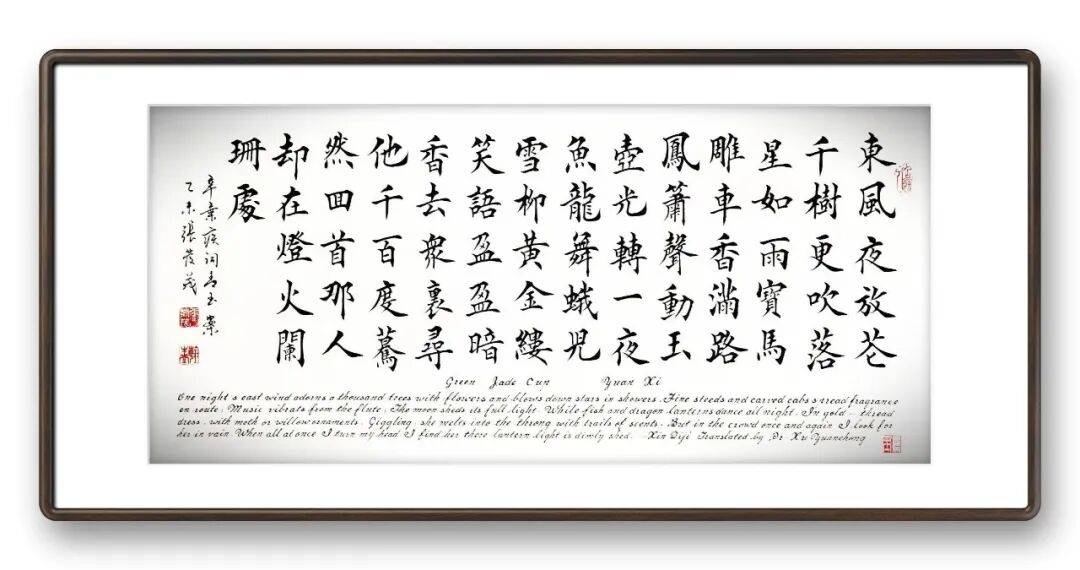 東風夜放花
千樹更吹落
星如雨寶馬
雕車香滿路
鳳簫聲動玉
壺光轉一夜
魚龍舞蛾兒
雪柳黃金縷
笑語盈盈暗
香去衆裏尋
他千百度驀
然回首那人
却在燈火闌
珊處
辛棄疾詞青玉案
乙未張茂
Green Jade Cup Yuan Xi
One night's east wind adorns a thousand trees with flowers and blows down stars in showers. Fine steeds and carved cabs spread fragrance
en route; Music vibrats from the flute; The moon sheds its full light. While fish and dragon lanterns dance all night. In gold-thread
dress, with moth or willow ornaments. Giggling, she melts into the throng with trails of scents. But in the crowd once and again I look for
her in vain. When all at once I turn my head I find her there lantern light is dimly shed. Xin Qiji Translated by Dr Xu Yuanchong